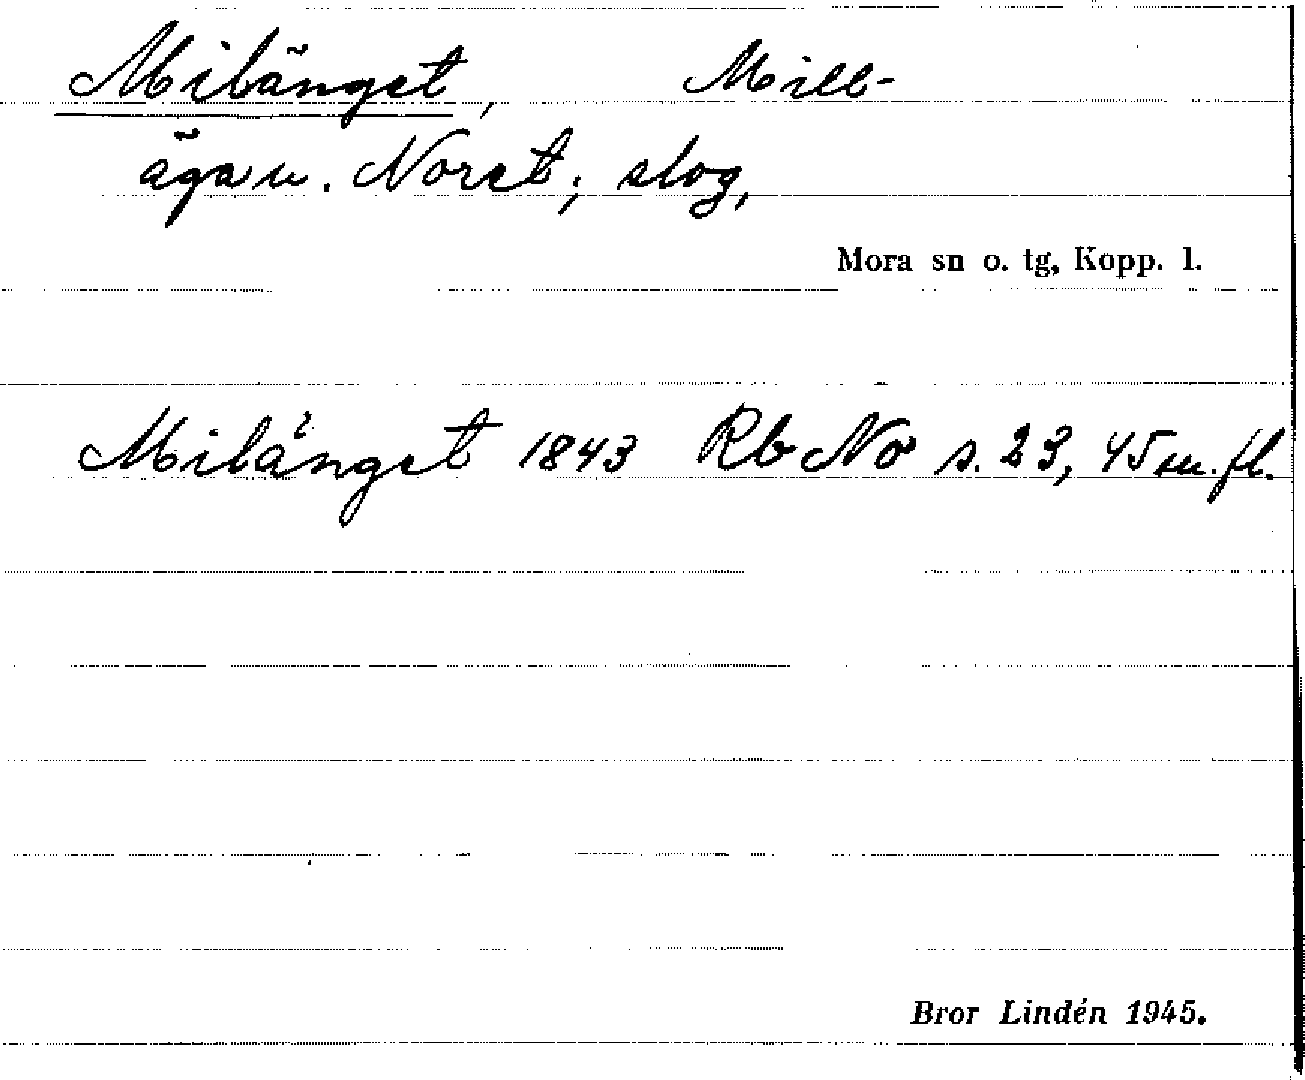 Milänget, Mill-
äga u. Noret; slog,
Mora sn o. tg, Kopp. l.
Milänget 1843 Rb No s. 23, 45 m. fl.
Bror Lindén 1945.